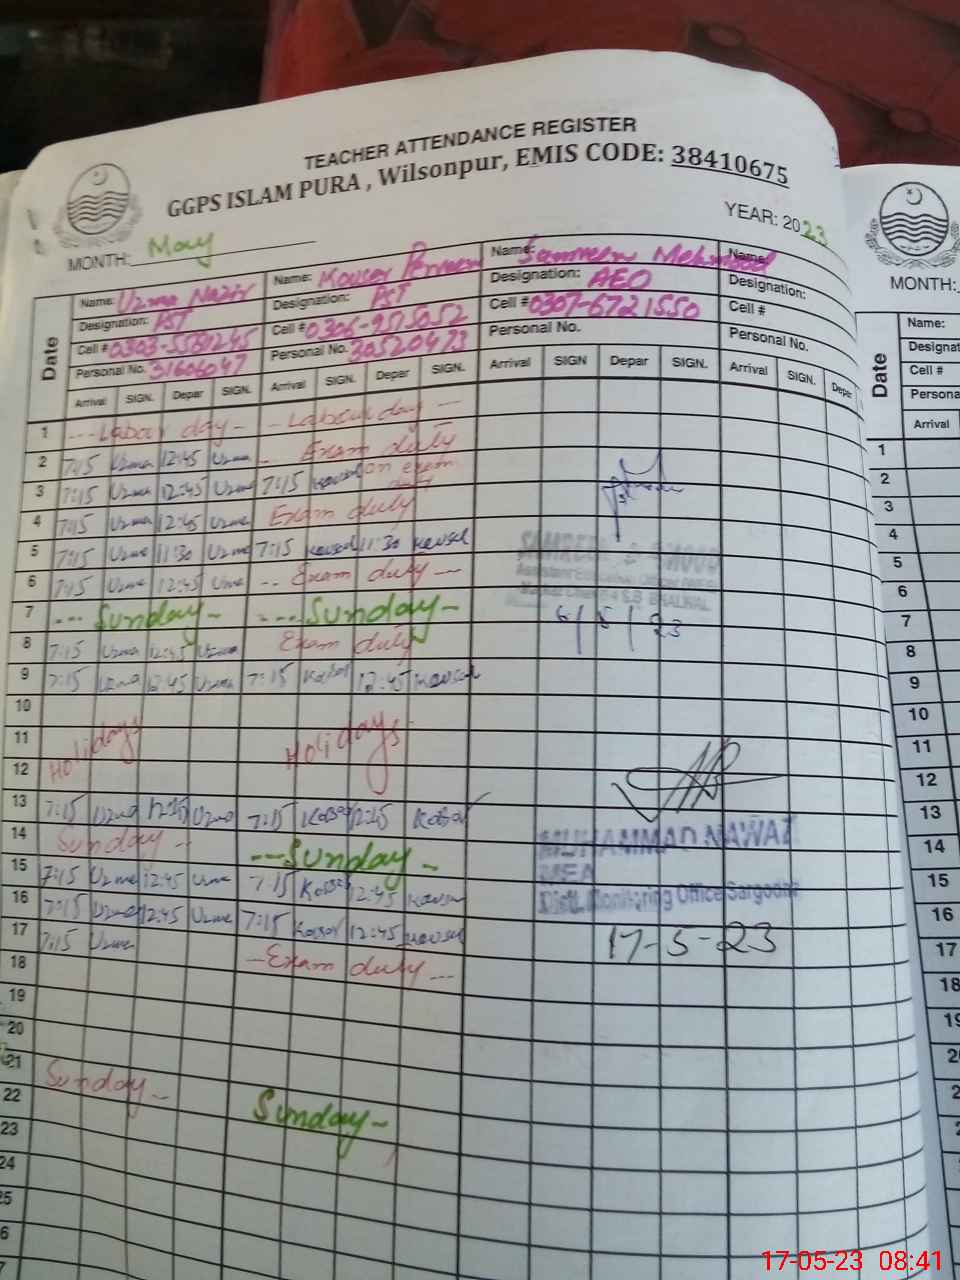 TEACHER ATTENDANCE REGISTER
GGPS ISLAM PURA , Wilsonpur, EMIS CODE: 38410675
MONTH: May YEAR: 2023
Date
Name: Uzma Nazir Name: Kousar Perveen Name: Samreen Mehmood Name:
Designation: PST Designation: PST Designation: AEO Designation:
Cell # Cell # Cell # 0307-6721550 Cell #
Personal No. 31606047 Personal No. 30520473 Personal No. Personal No.
Arrival SIGN. Depar SIGN. Arrival SIGN. Depar SIGN. Arrival SIGN Depar SIGN. Arrival SIGN. Depar
1 ---Labour day- - -Labour day---
2 7:15 Uzma 12:45 Uzma - Exam duty
3 7:15 Uzma 12:45 Uzma 7:15 Kousar on exam duty
4 7:15 Uzma 12:45 Uzma Exam duty
5 7:15 Uzma 11:30 Uzma 7:15 Kousar 11:30 Kousar
6 7:15 Uzma 12:45 Uzma -- Exam duty ---
7 --- Sunday- --- Sunday-
8 7:15 Uzma 12:45 Uzma Exam duty
9 7:15 Uzma 12:45 Uzma 7:15 Kousar 12:45 Kousar
10
11 Holidays Holidays
12
13 7:15 Uzma 12:45 Uzma 7:15 Kousar 12:45 Kousar
14 Sunday - ---Sunday-
15 7:15 Uzma 12:45 Uzma 7:15 Kousar 12:45 Kousar
16 7:15 Uzma 12:45 Uzma 7:15 Kousar 12:45 Kousar
17 7:15 Uzma -Exam duty---
18
19
20
21 Sunday- Sunday-
22
23
24
25
6
7
SAMREEN MEHMOOD
Assistant Education Officer
BHALWAL
6/5/23
MUHAMMAD NAWAZ
MEA
Distt. Monitoring Office Sargodha
17-5-23
MONTH:
Date
Name:
Designat
Cell #
Persona
Arrival
1
2
3
4
5
6
7
8
9
10
11
12
13
14
15
16
17
18
19
20
17-05-23 08:41